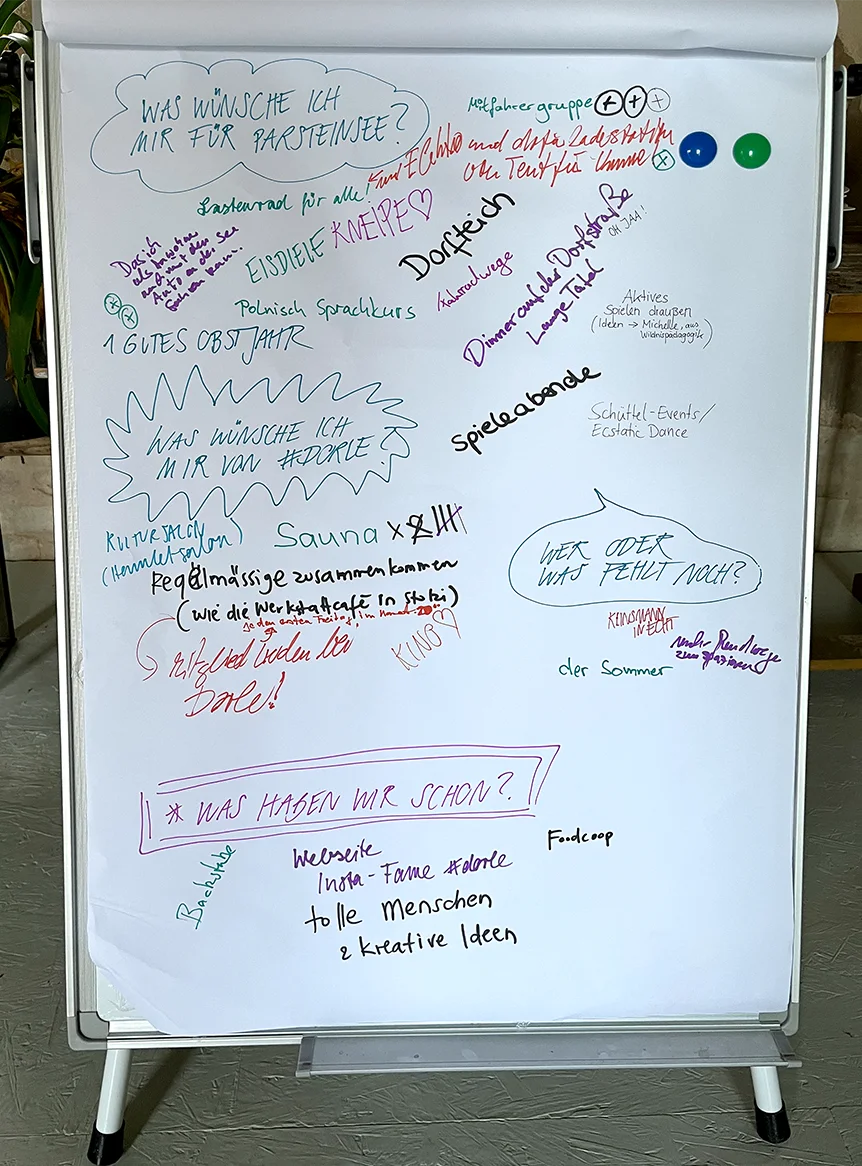 WAS WÜNSCHE ICH
MIR FÜR PARSTEINSEE?
Mitfahrergruppe + + +
und dafür Ladestation
oder Tent für +
Lastenrad für alle!
KNEIPE ♡
EISDIELE
Dorfteich
Das ich
als Anwohner
auch mit dem
Auto an den See
fahren kann.
+ +
Dinner auf der Dorfstraße
Lange Tafel
OH JAA!
Fahrradwege
Polnisch Sprachkurs
1 GUTES OBSTJAHR
Aktives
Spielen draußen
(Ideen → Michelle, aus
Wildnispädagogik)
Spieleabende
Schüttel-Events/
Ecstatic Dance
WAS WÜNSCHE ICH
MIR VON #DORLE?
KULTURSALON
Sauna x
Regelmässige zusammenkommen
(wie die Werkstattcafé in Stolzi)
jeden ersten Freitag im Monat
Mitglied werden bei
Dorle!
KINO ♡
WER ODER
WAS FEHLT NOCH?
KLINSMANN
IN ECHT
mehr Rundwege
zum spazieren
der Sommer
* WAS HABEN WIR SCHON?
Backstube
Webseite
Insta-Fame #dorle
Foodcoop
tolle Menschen
& kreative Ideen